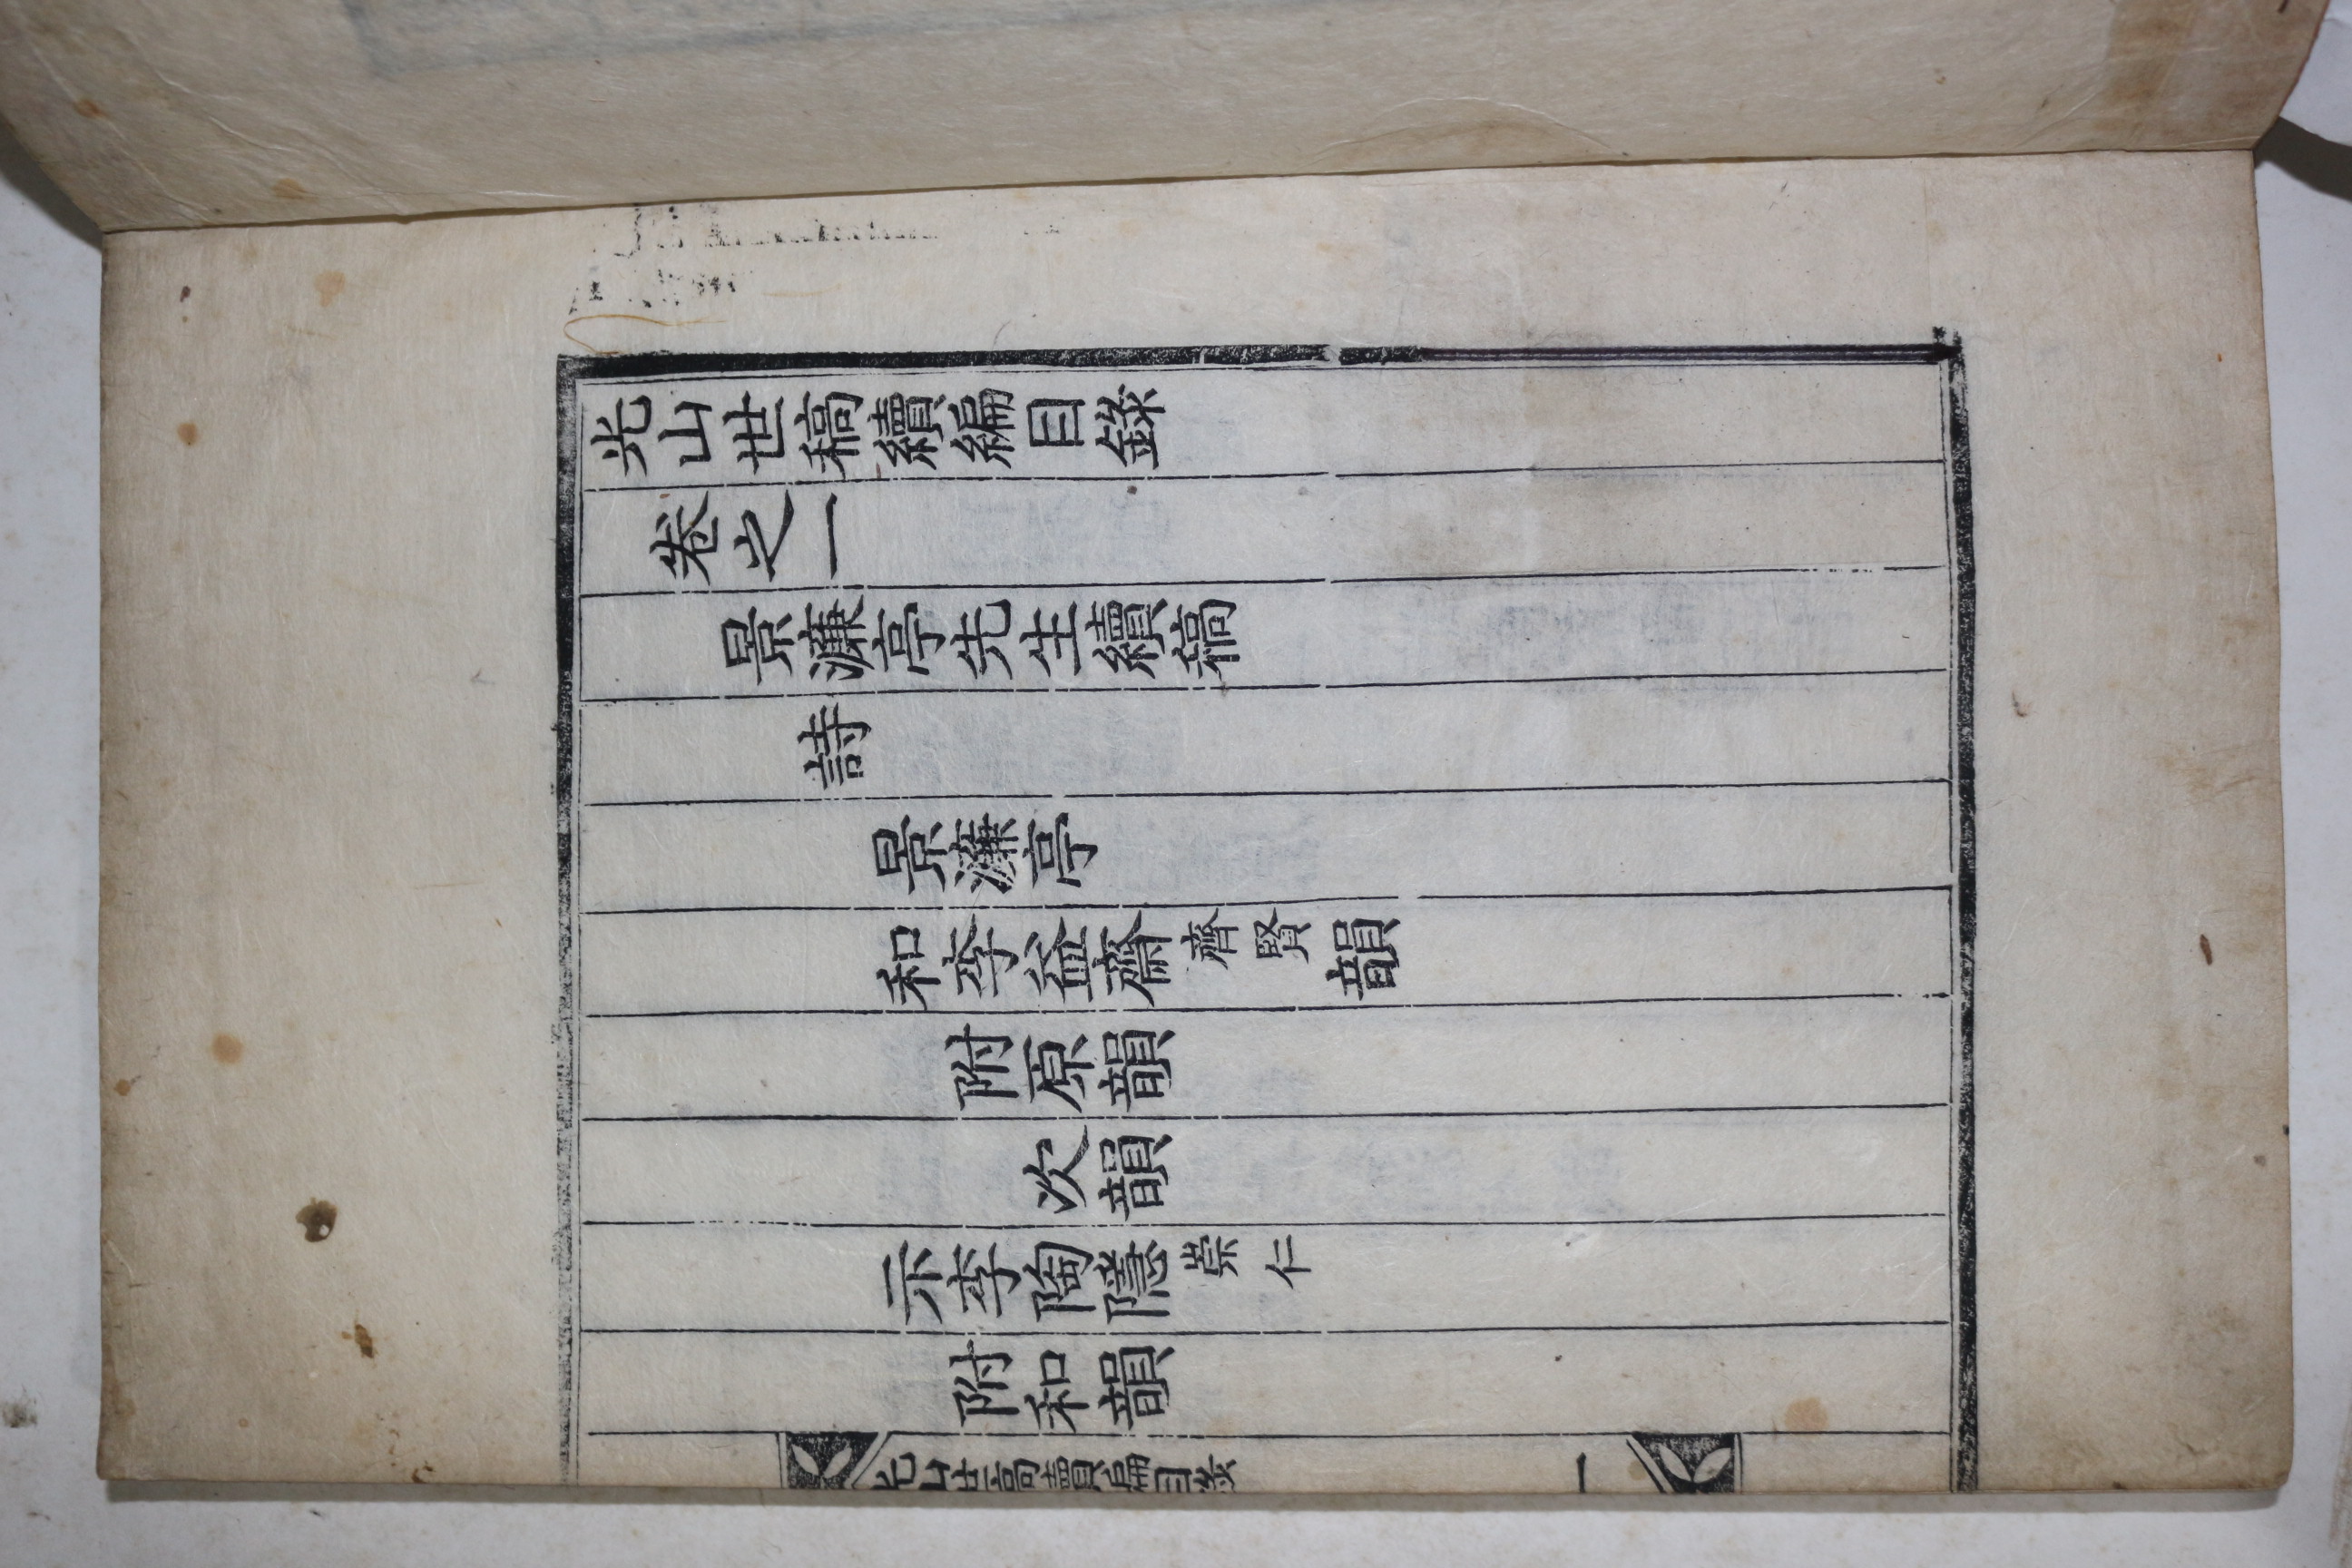 光山世稿續編目錄
卷之一
景濂亭先生續稿
詩
景濂亭
和李益齋齊賢韻
附原韻
次韻
示李陶隱崇仁
附和韻
光山世稿續編目錄 一